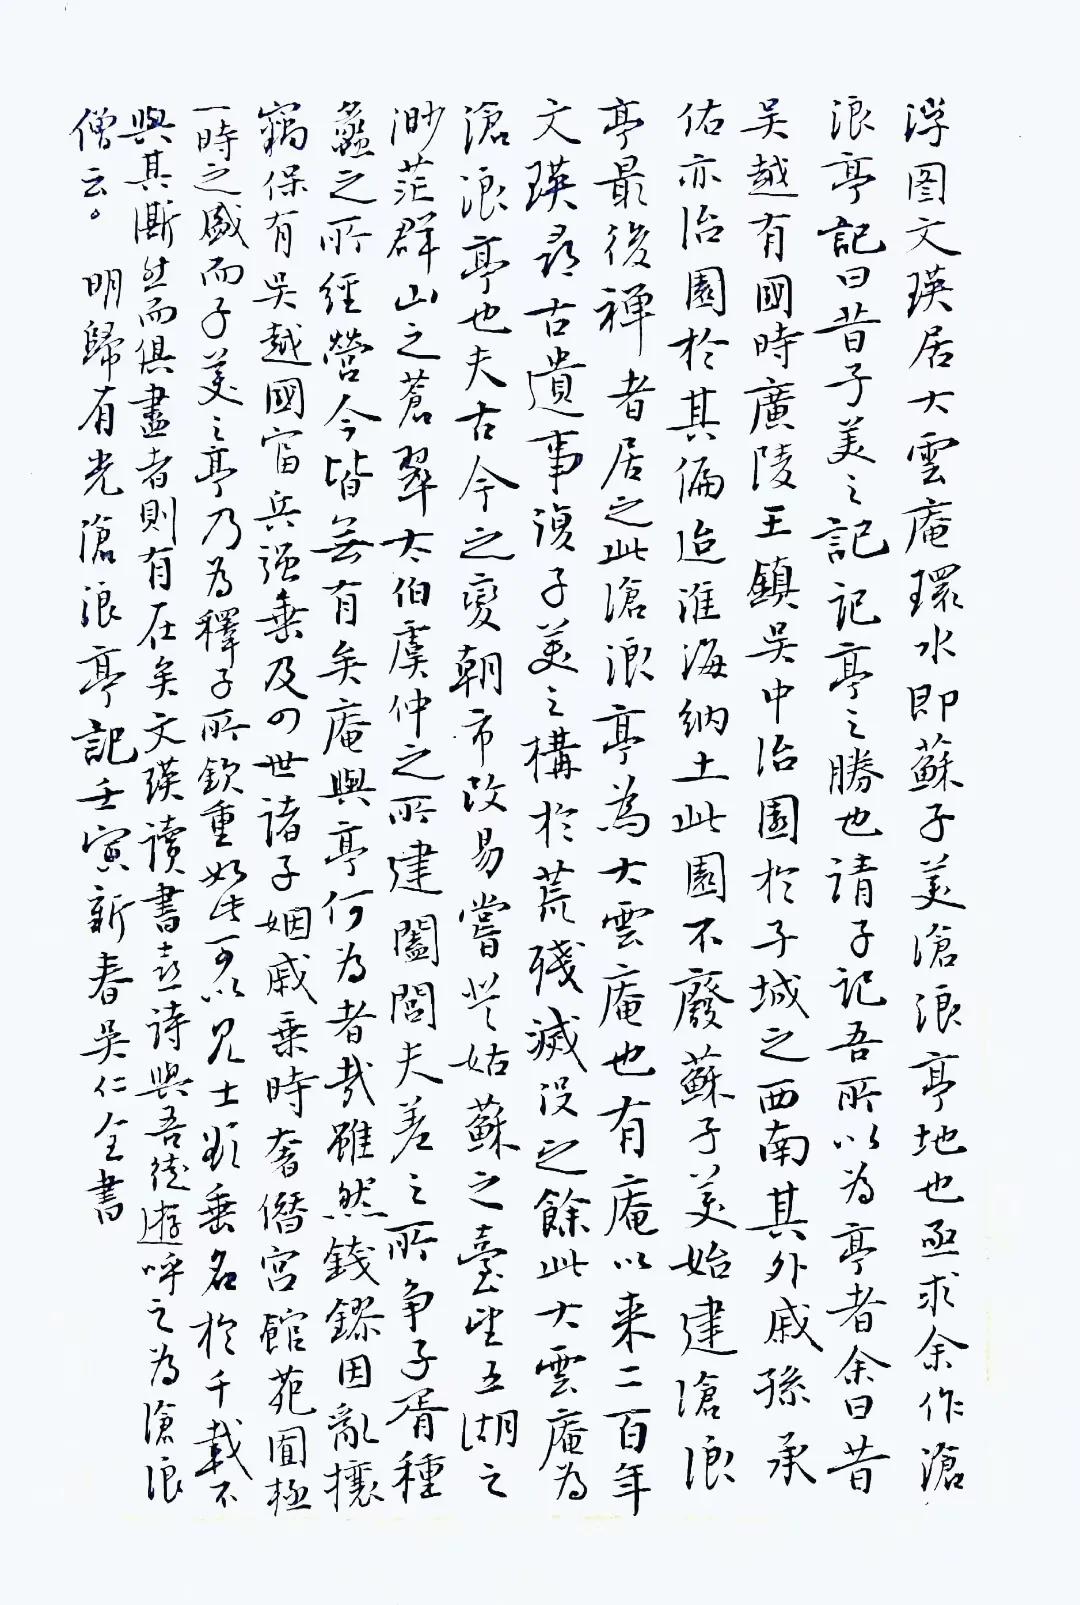 浮图文瑛居大雲庵環水即蘇子美滄浪亭地也亟求余作滄
浪亭記曰昔子美之記記亭之勝也請子記吾所以為亭者余曰昔
吴越有國時廣陵王鎮吴中治園於子城之西南其外戚孫承
佑亦治園於其偏迨淮海納土此園不廢蘇子美始建滄浪
亭最後禅者居之此滄浪亭為大雲庵也有庵以来二百年
文瑛尋古遺事復子美之構於荒殘滅没之餘此大雲庵為
滄浪亭也夫古今之變朝市改易嘗登姑蘇之臺望五湖之
渺茫群山之蒼翠太伯虞仲之所建闔閭夫差之所争子胥種
蠡之所經營今皆無有矣庵與亭何為者哉雖然錢鏐因亂攘
竊保有吴越國富兵强垂及四世諸子姻戚乗時奢僭宫館苑囿極
一時之盛而子美之亭乃為釋子所欽重如此可以見士欲垂名於千載不
與其澌然而俱盡者則有在矣文瑛讀書喜詩與吾徒遊呼之為滄浪
僧云。 明歸有光滄浪亭記壬寅新春吴仁全書